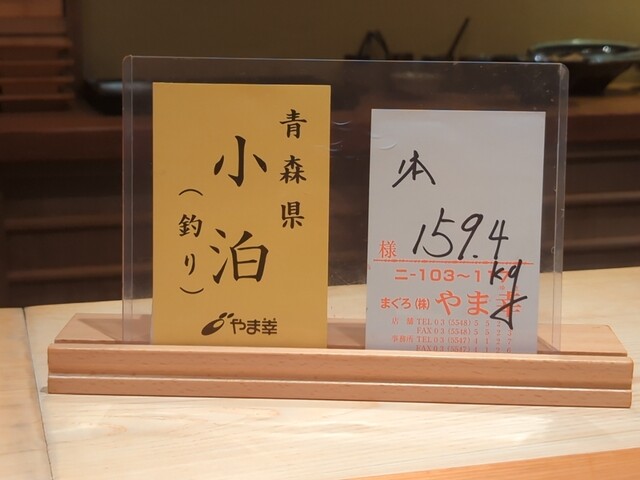 青森県
小泊
(釣り)
やま幸
本
159.4
kg
様
ニ-103~1
まぐろ(株)やま幸
店舗 TEL 03 (5548) 5
FAX 03 (5548) 5
事務所 TEL 03 (5547)
FAX 03 (5547)